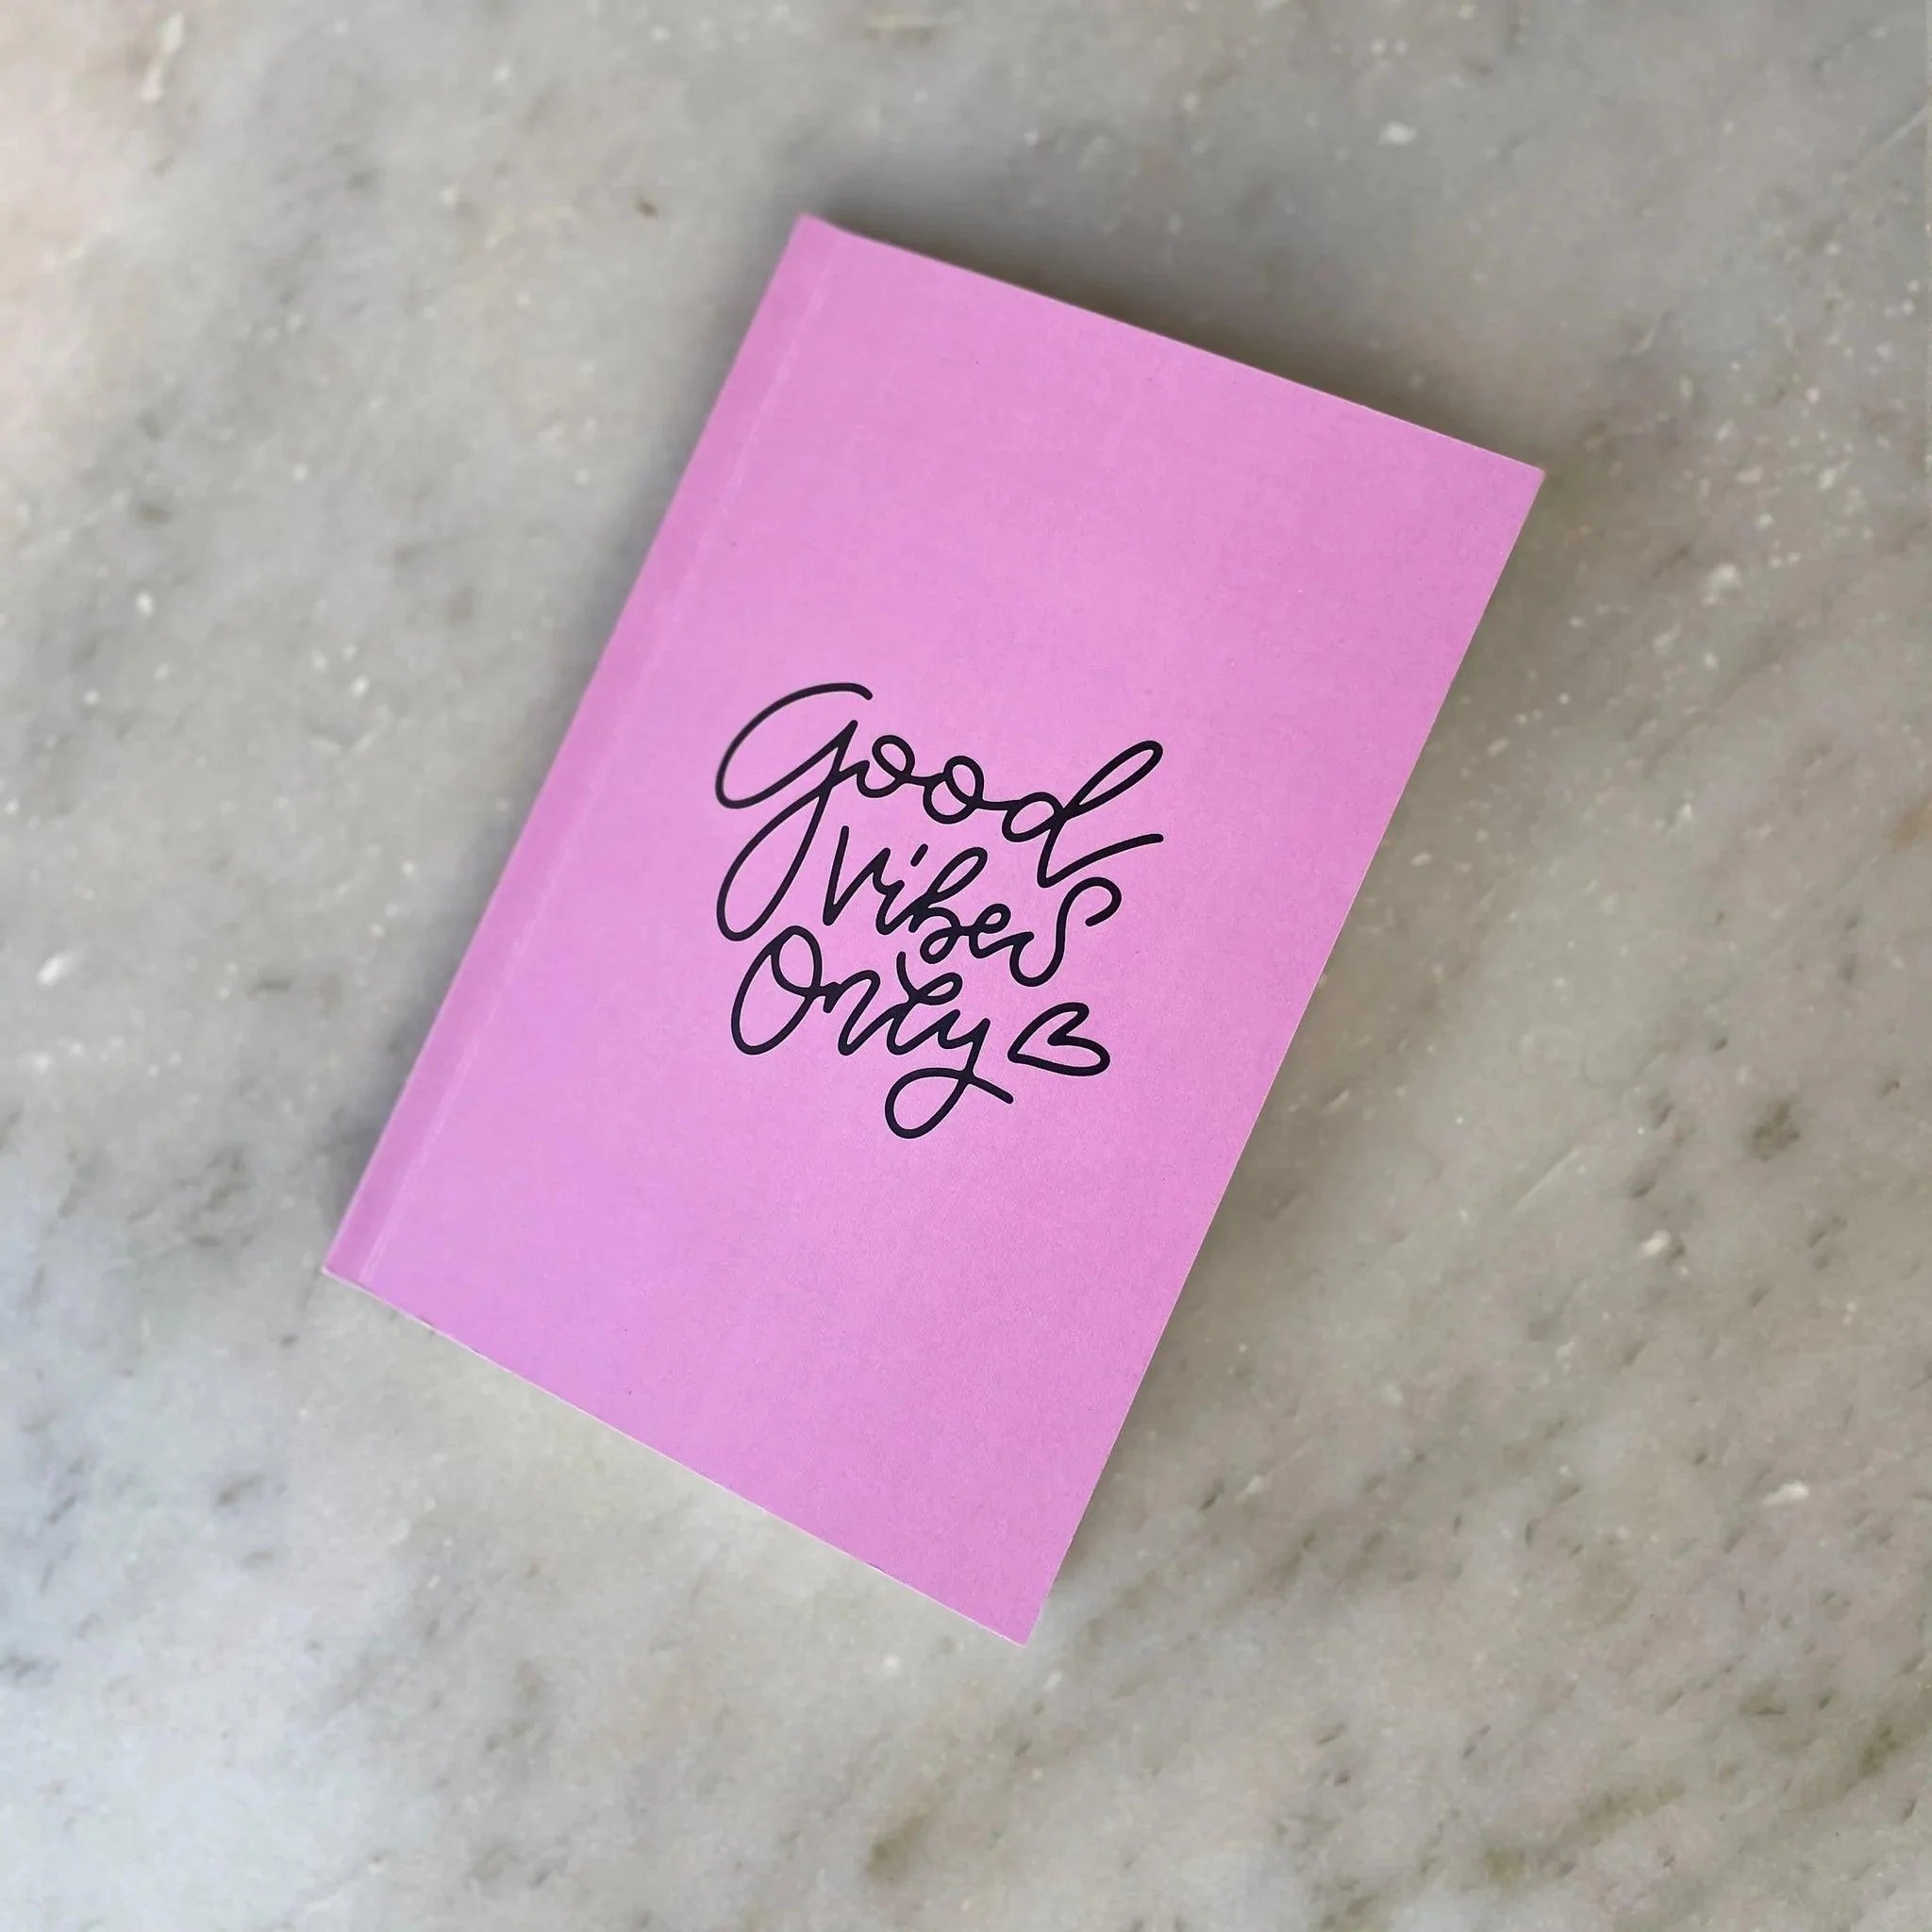 Good
Vibes
Only♡